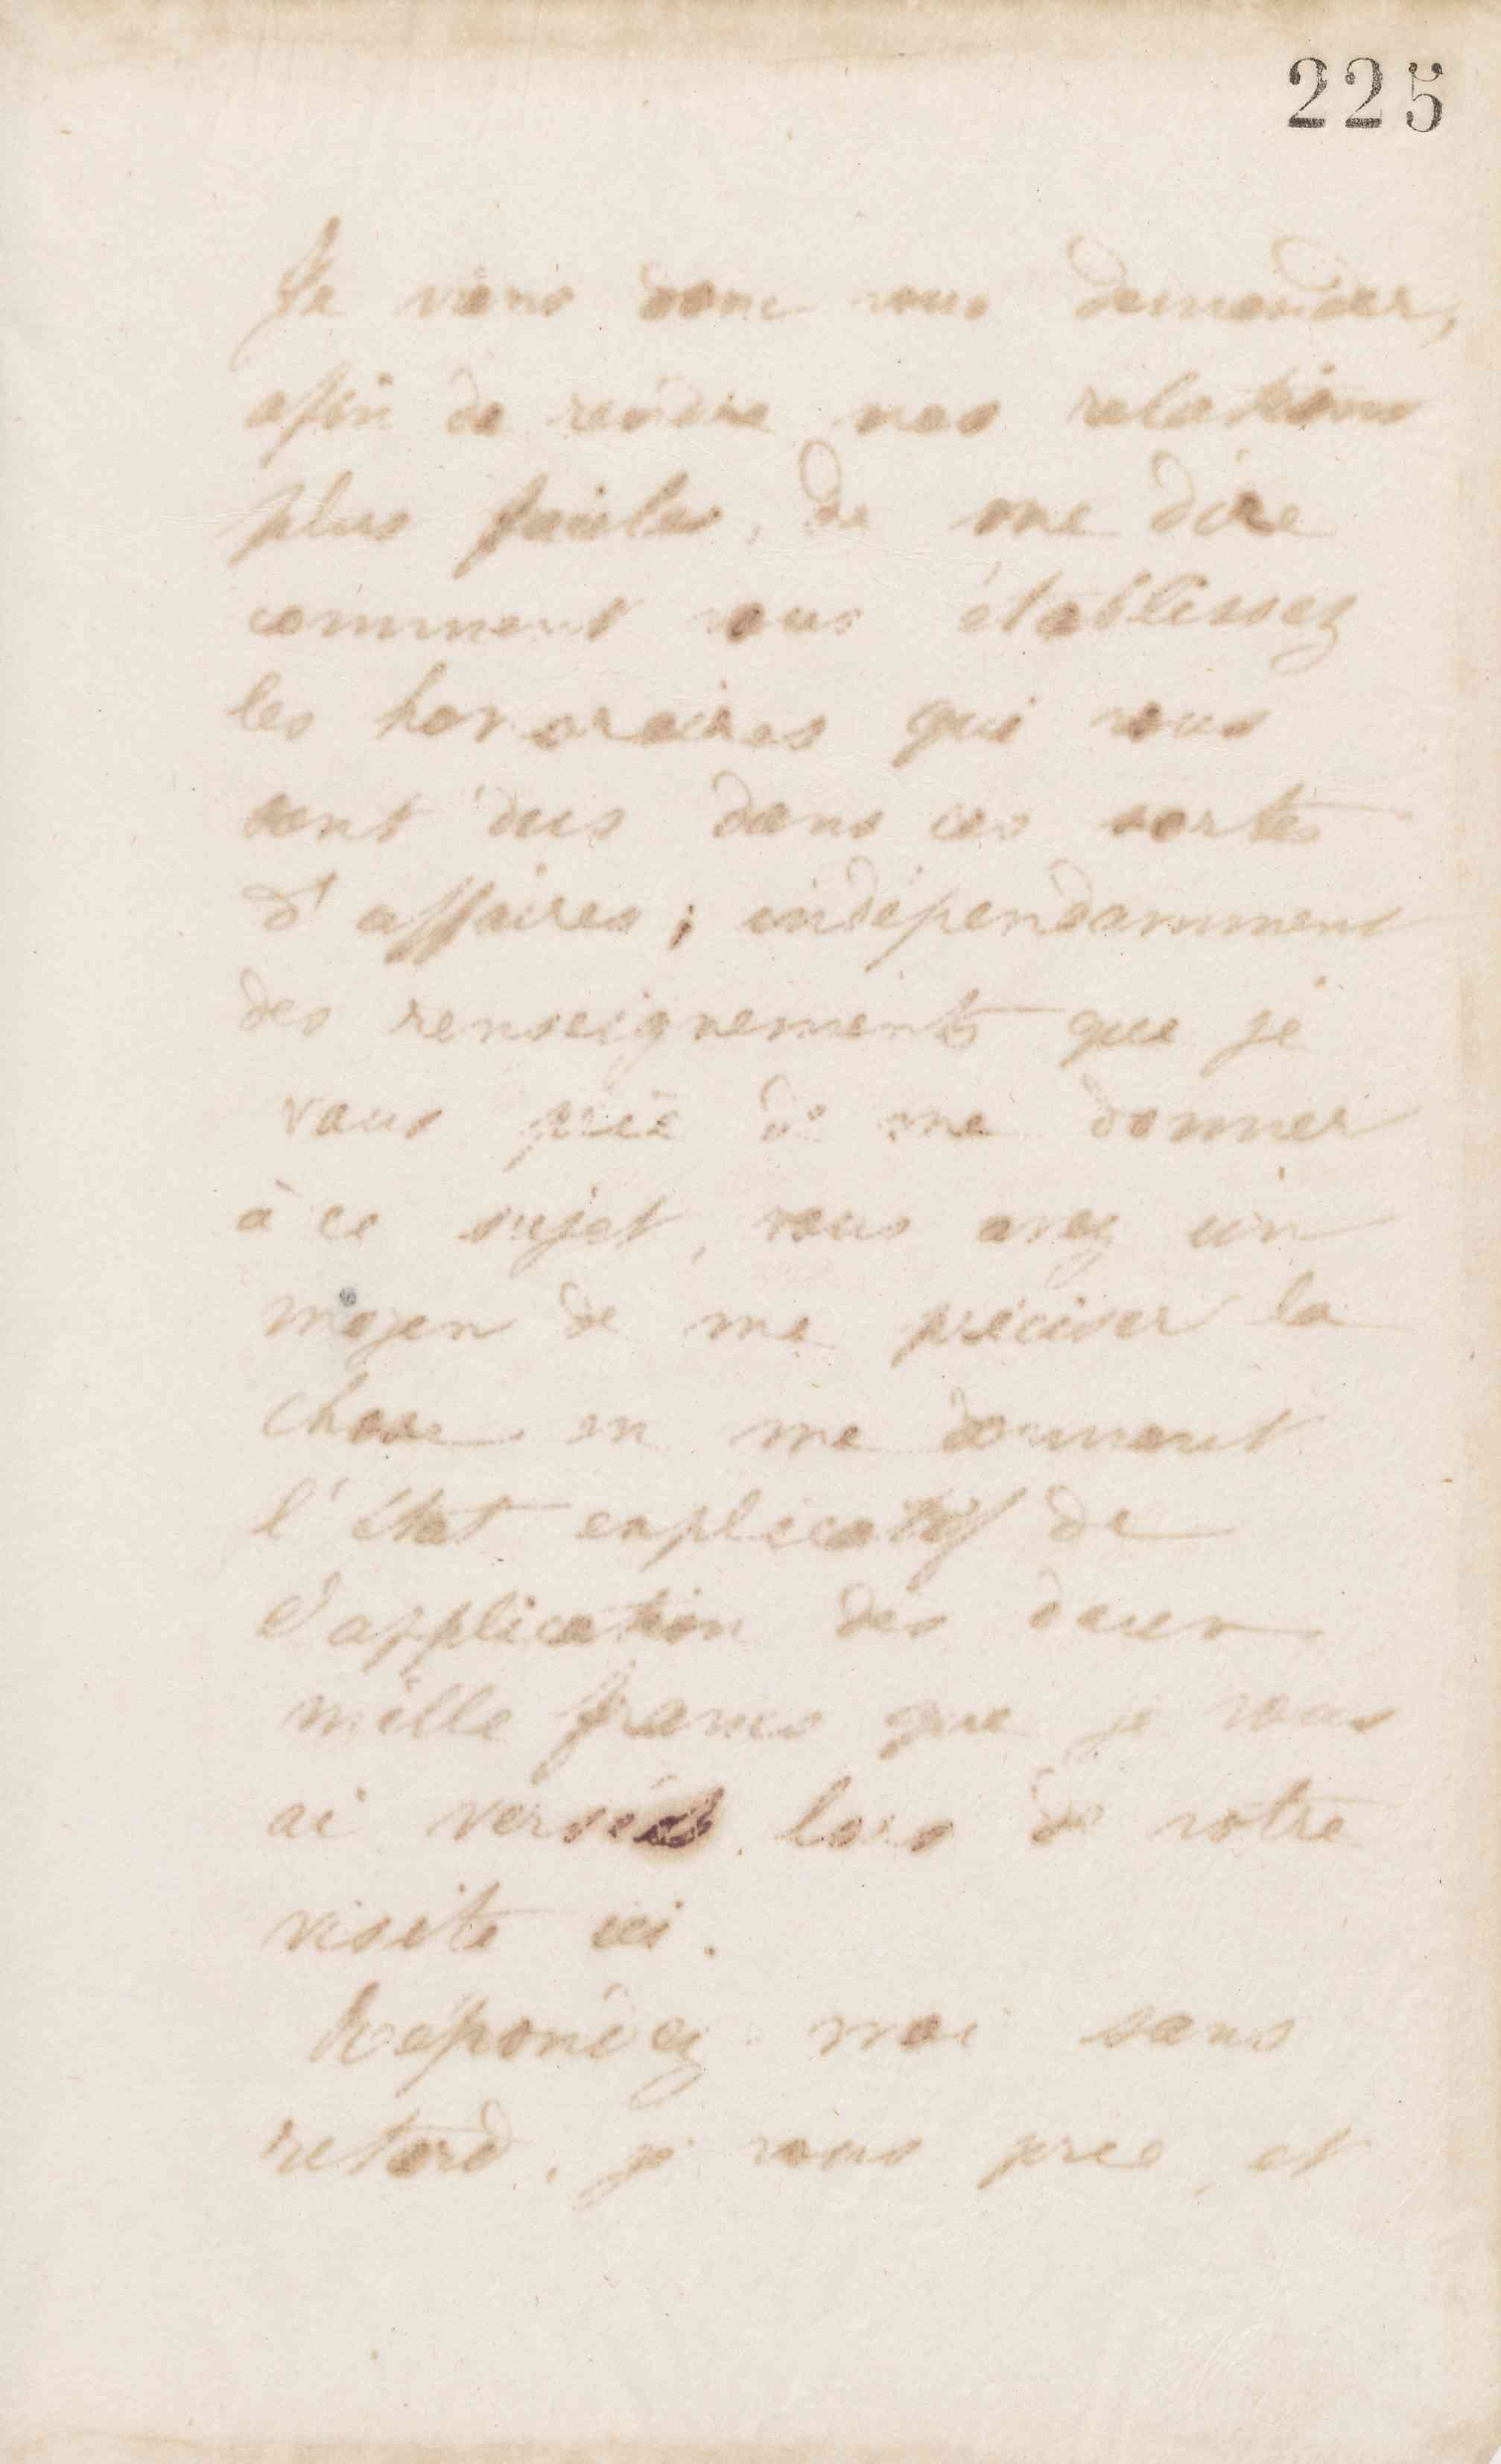 225
Je viens donc vous demander,
afin de rendre nos relations
plus faciles, de me dire
comment vous établissez
les honoraires qui vous
sont dus dans ces sortes
d'affaires ; indépendamment
des renseignements que je
vous prie de me donner
à ce sujet, vous avez un
moyen de me préciser la
chose en me donnant
l'état explicatif de
l'application des deux
mille francs que je vous
ai versés lors de votre
visite ici.
Répondez moi sans
retard, je vous prie, et